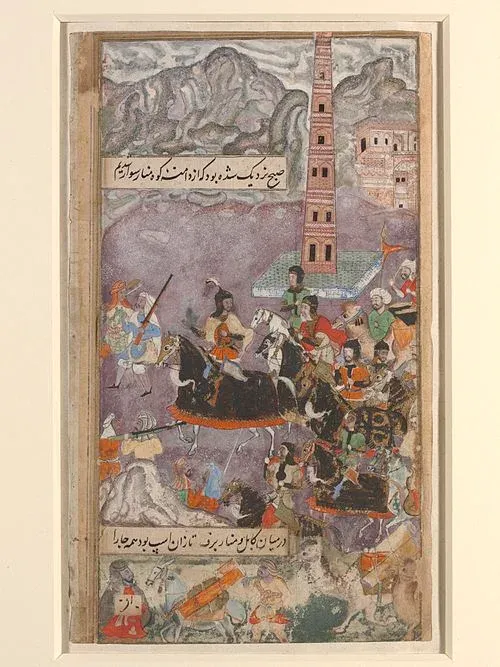 صبح نزدیک شده بود که از دامنه کوه منار سوار شدیم
در میان کابل و منار برف تا زان اسپ بود همه جا را